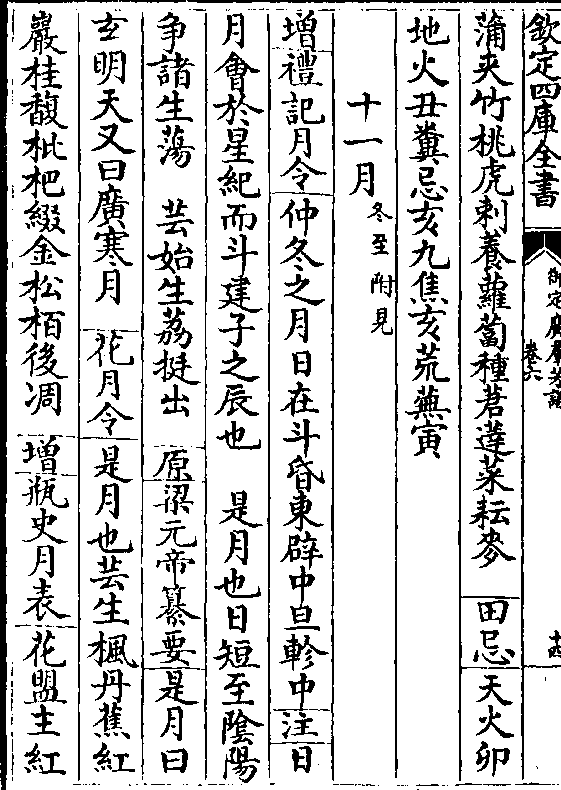 欽定四庫全書
御定廣羣芳譜
卷六
十四
蒲夾竹桃虎刺養蘿蔔種莙薘菜耘麥 田忌天火卯
地火丑糞忌亥九焦亥荒蕪寅
十一月冬至附見
增禮記月令仲冬之月日在斗昏東辟中旦軫中注日
月會於星紀而斗建子之辰也 是月也日短至陰陽
争諸生蕩 芸始生荔挺出 原梁元帝纂要是月曰
玄明天又曰廣寒月 花月令是月也芸生楓丹蕉紅
巖桂馥枇杷綴金松栢後凋 增瓶史月表花盟主紅